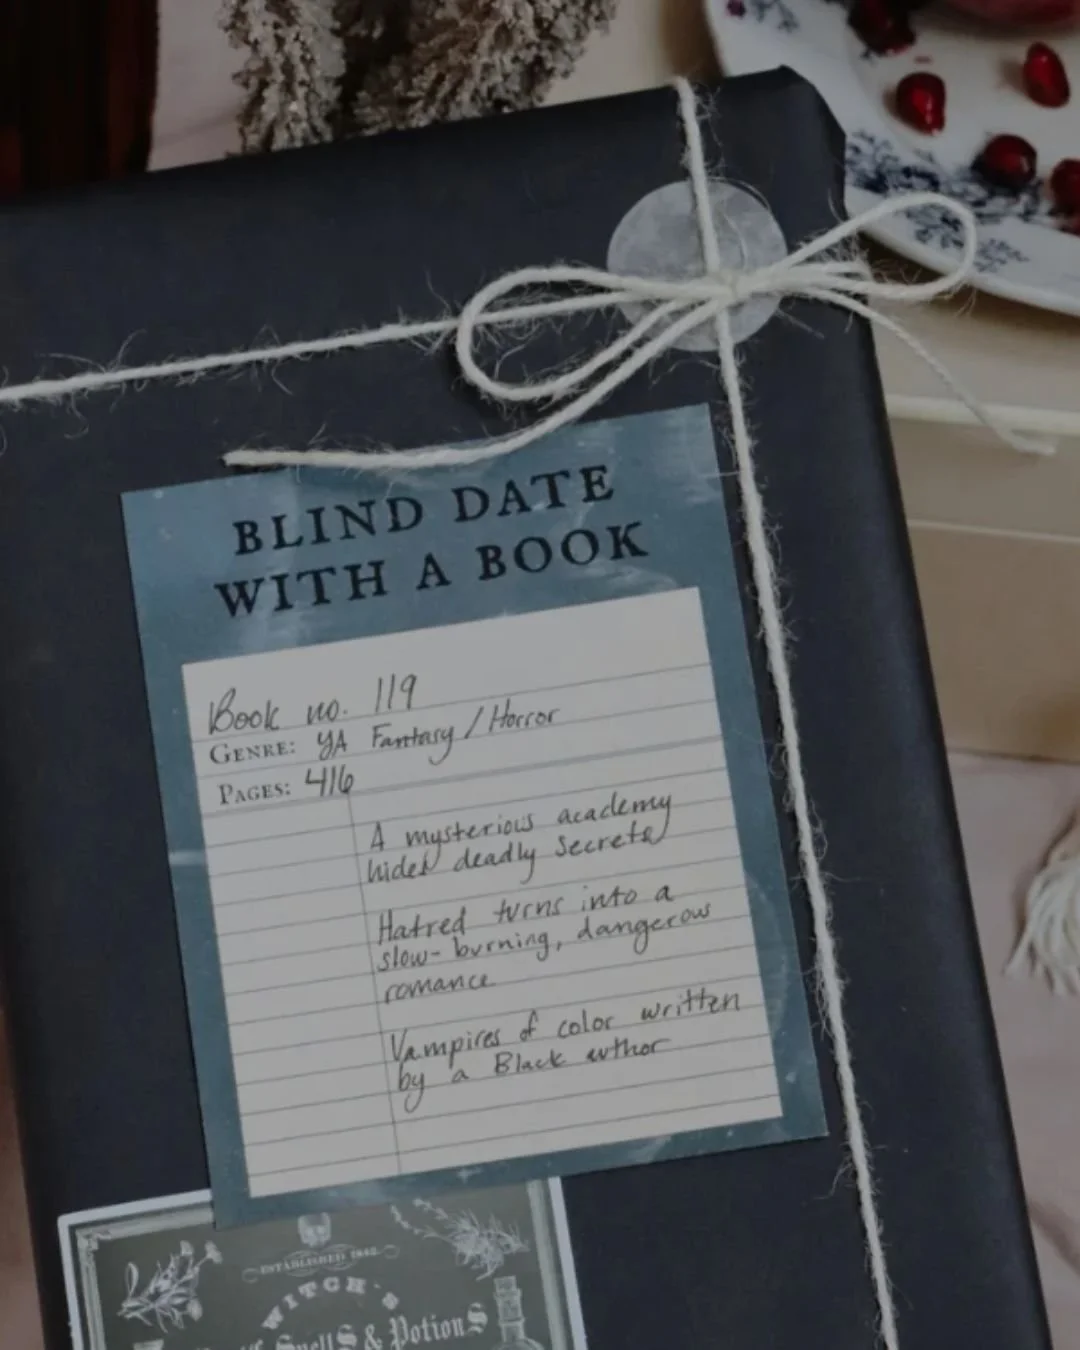 BLIND DATE
WITH A BOOK
Book no. 119
GENRE: YA Fantasy / Horror
PAGES: 416
A mysterious academy
hides deadly secrets
Hatred turns into a
slow-burning, dangerous
romance
Vampires of color written
by a Black author
ESTABLISHED 1882
WITCH'S
Spells & Potions